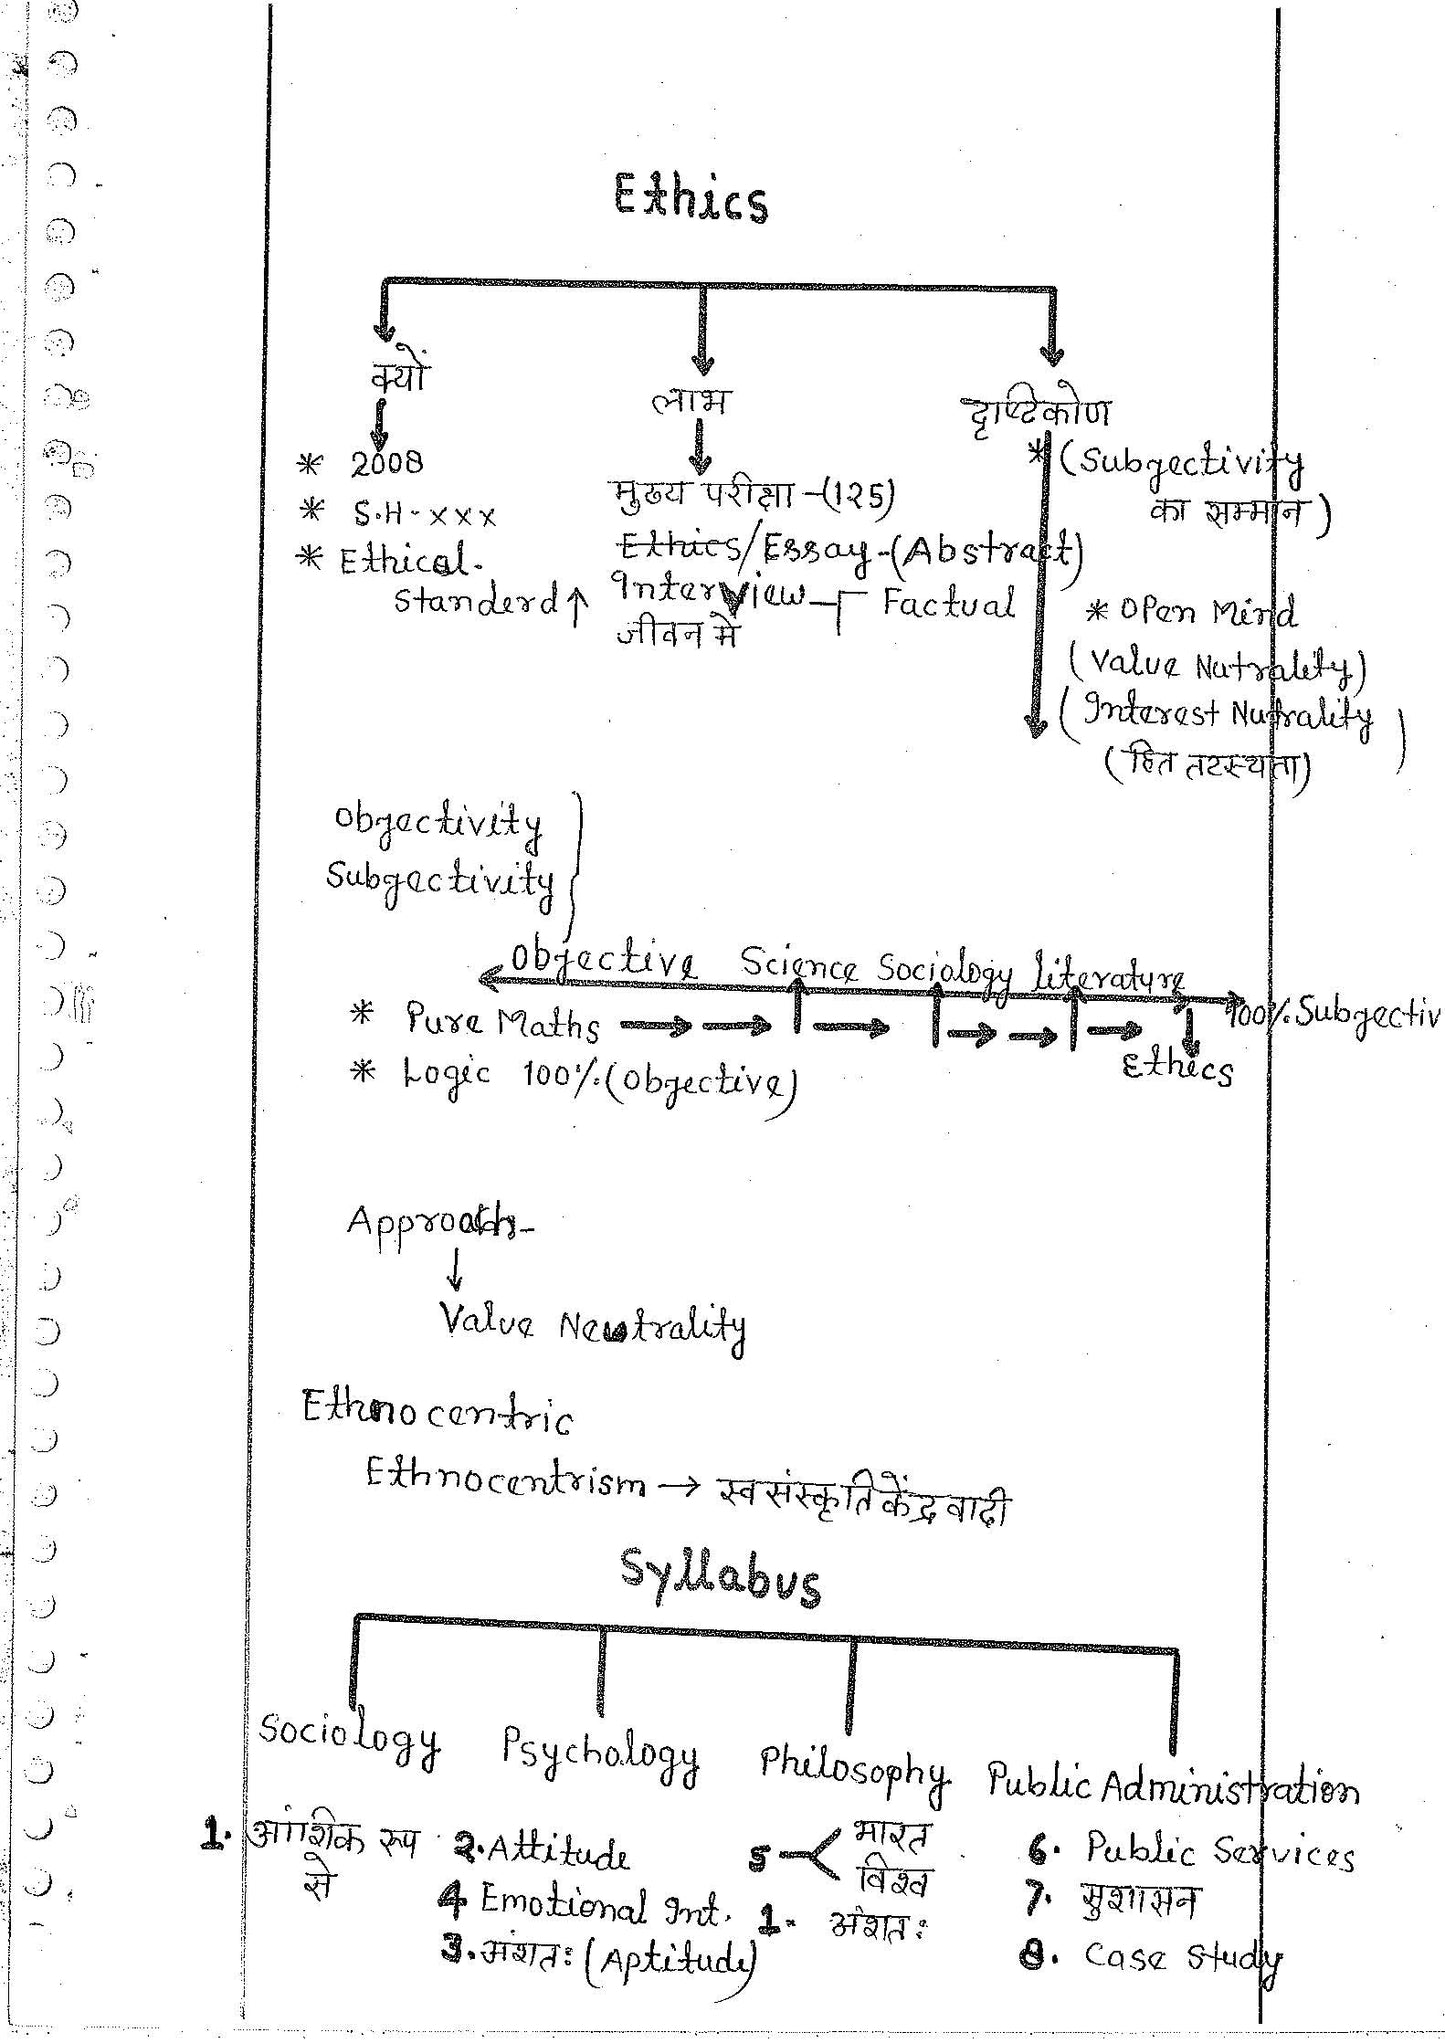 Ethics
क्यों
लाभ
दृष्टिकोण
* 2008
* S.H-xxx
* Ethical.
Standerd ↑
मुख्य परीक्षा -(125)
Ethics/Essay-(Abstract)
Interview
Factual
जीवन में
* (Subgectivity
का सम्मान)
* Open Mind
(Value Nutrality)
(Interest Nutrality)
(हित तटस्थता)
Obgectivity
Subgectivity
Objective Science Sociology literature
100% Subgectiv
* Pure Maths
Ethics
* Logic 100% (Obgective)
Approach-
↓
Value Neutrality
Ethnocentric
Ethnocentrism → स्व संस्कृति केंद्रवादी
Syllabus
Sociology Psychology Philosophy Public Administration
1. आंशिक रूप
से
2. Attitude
4 Emotional Int.
3. अंशतः (Aptitude)
5 भारत
विश्व
1. अंशतः
6. Public Services
7. सुशासन
8. Case Study